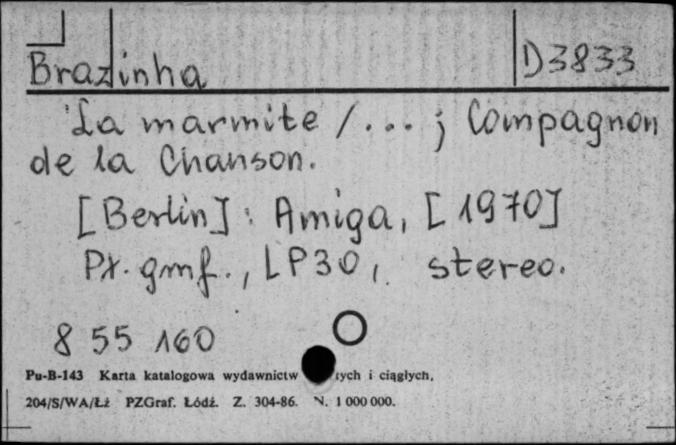 Brazinha D3833
La marmite /... ; Compagnon
de la Chanson.
[Berlin] : Amiga, [1970]
Pł. gmf., LP30, stereo.
8 55 160
Pu-B-143 Karta katalogowa wydawnictw tych i ciągłych,
204/S/WA/Łż PZGraf. Łódź. Z. 304-86. N. 1 000 000.